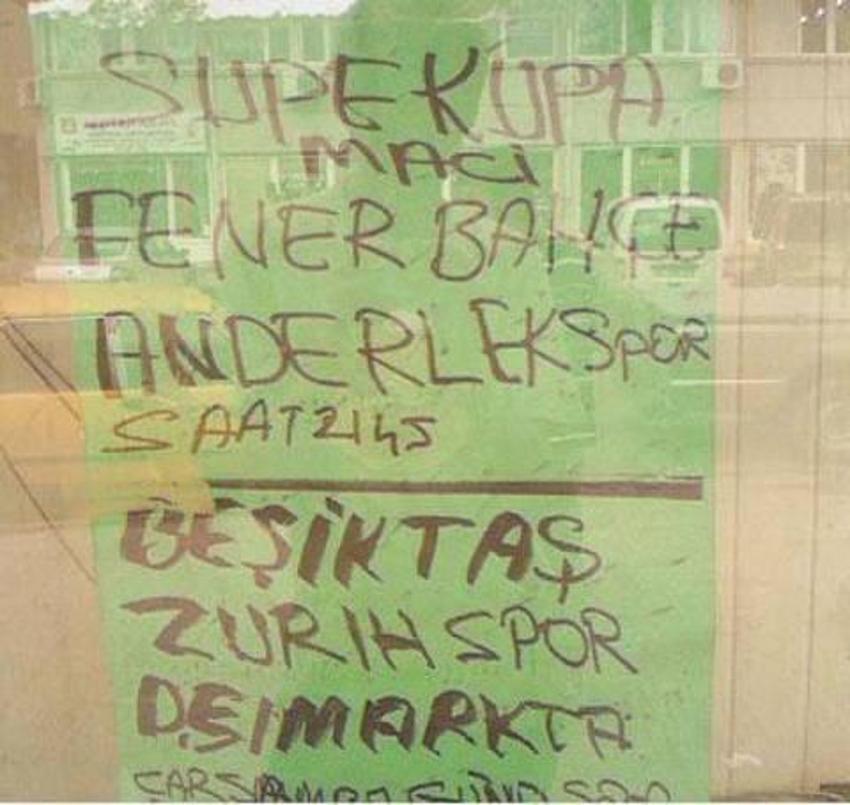 SUPEKUPA
MAÇI
FENER BAHÇE
ANDERLEKSPOR
SAAT 2145
BEŞİKTAŞ
ZURIH SPOR
DEŞIMARKTA